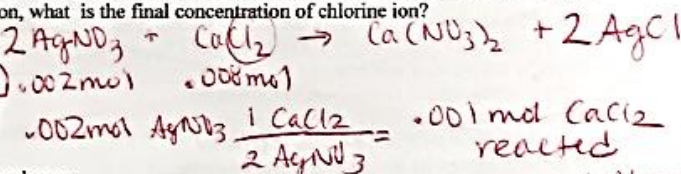 on, what is the final concentration of chlorine ion?
2 AgNO3 + CaCl2 → Ca(NO3)2 + 2 AgCl
.002mol .008mol
.002mol AgNO3 1 CaCl2 / 2 AgNO3 = .001 mol CaCl2 reacted